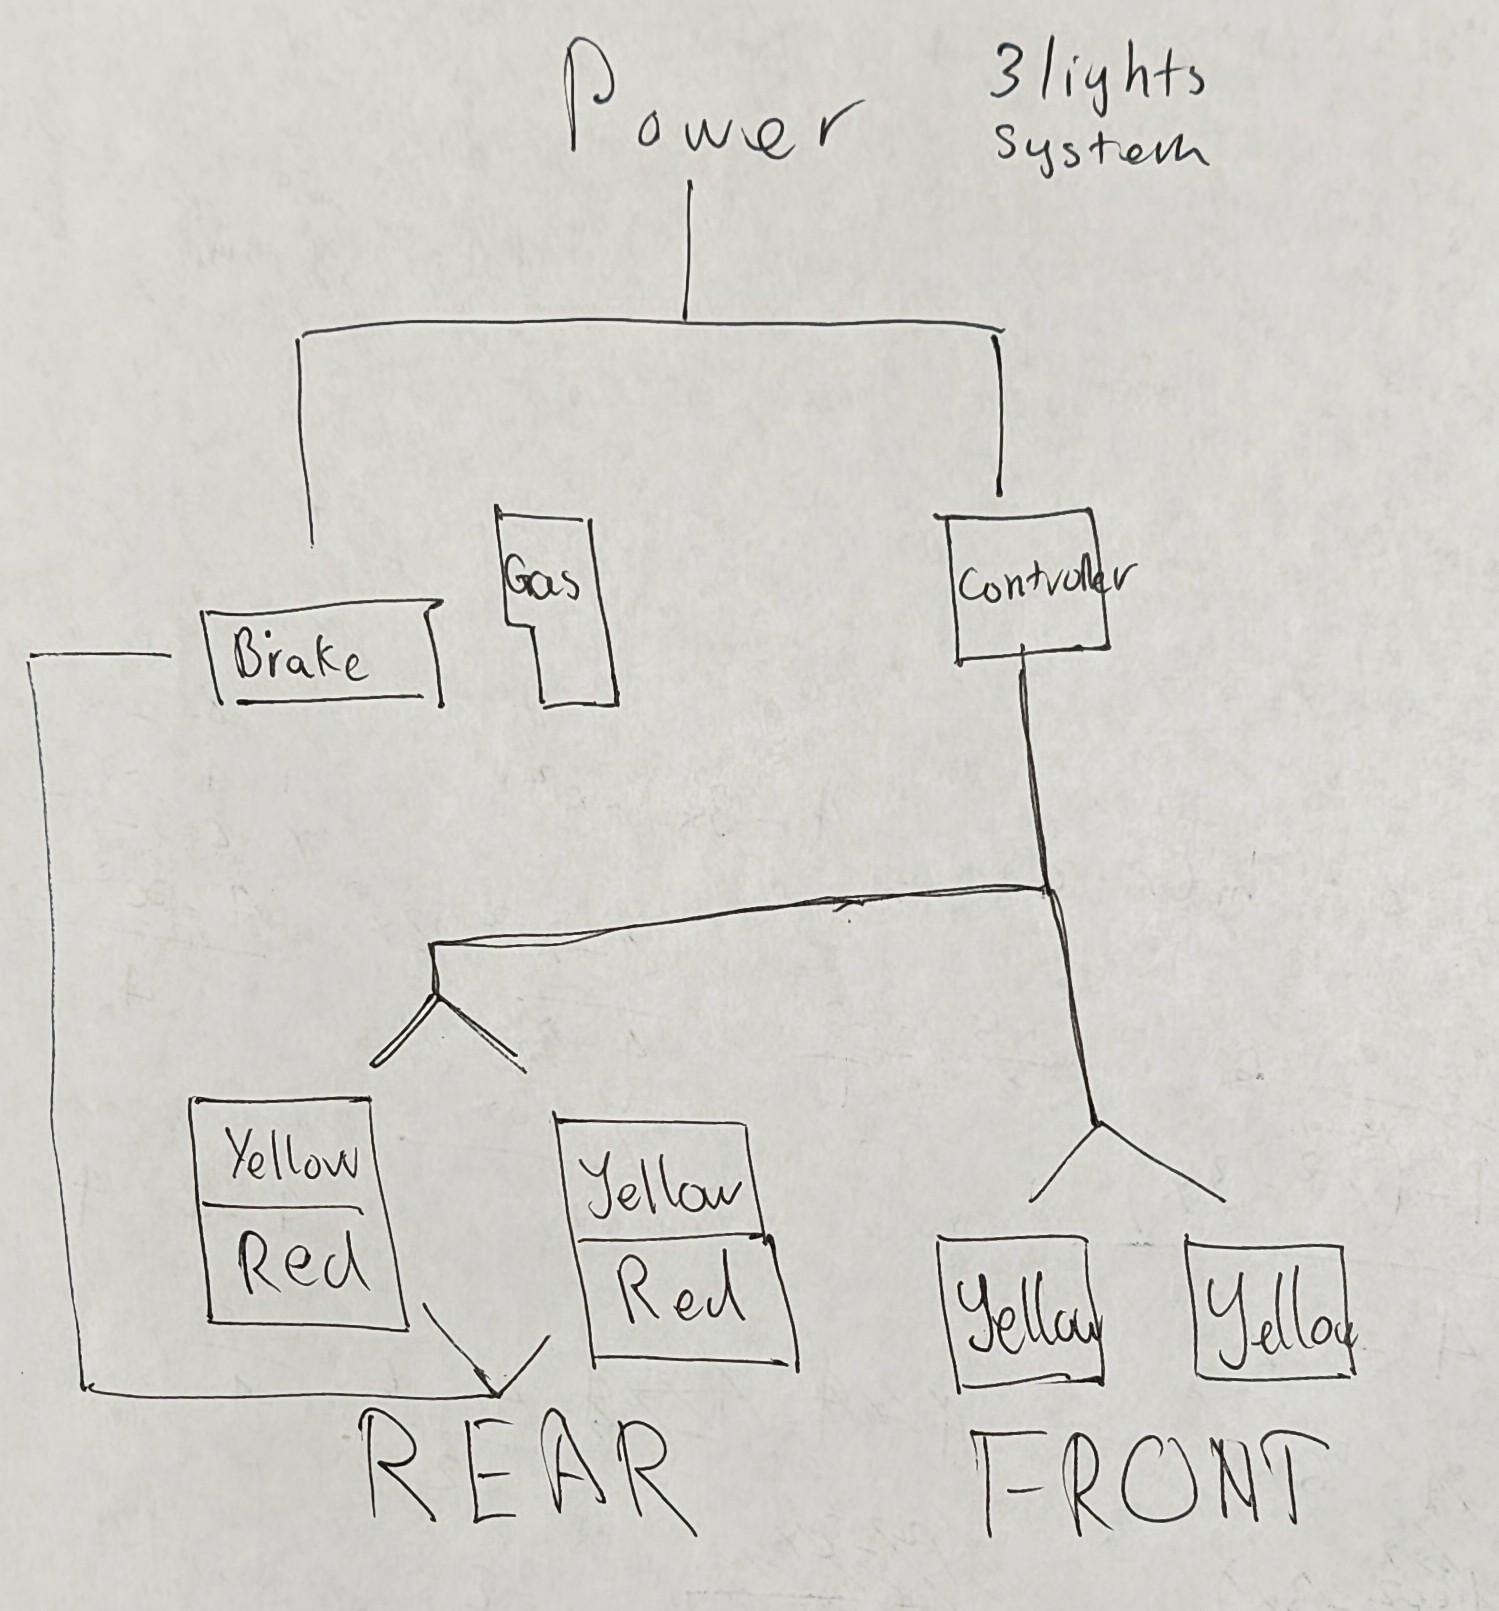 Power
3 lights
system
Gas
Controller
Brake
Yellow
Red
Yellow
Red
Yellow
Yellow
REAR
FRONT